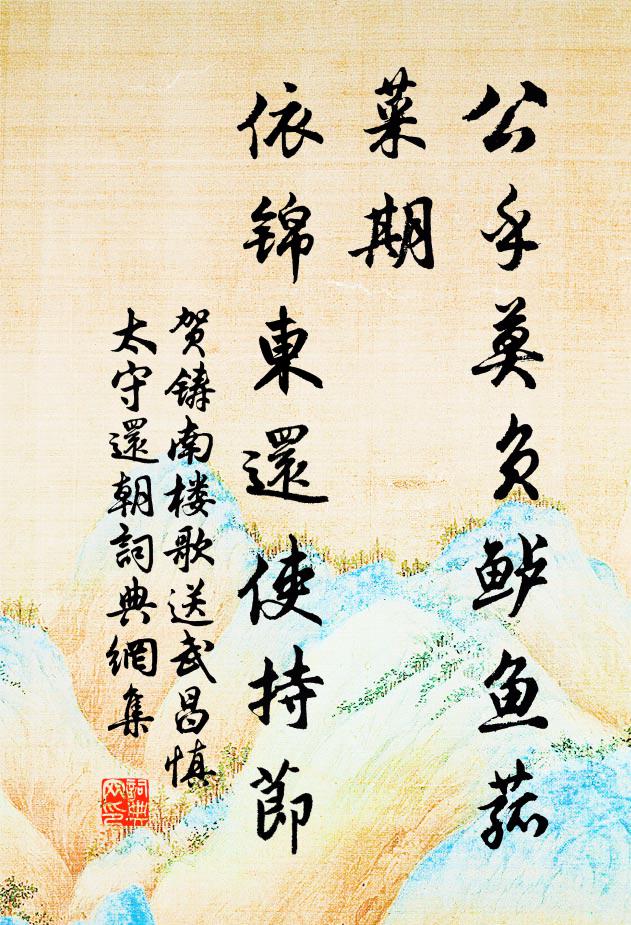 公乎莫负鲈鱼菰
菜期
依锦東還使持節
贺铸南楼歌送武昌慎
太守還朝詞典網集
詞典
网印